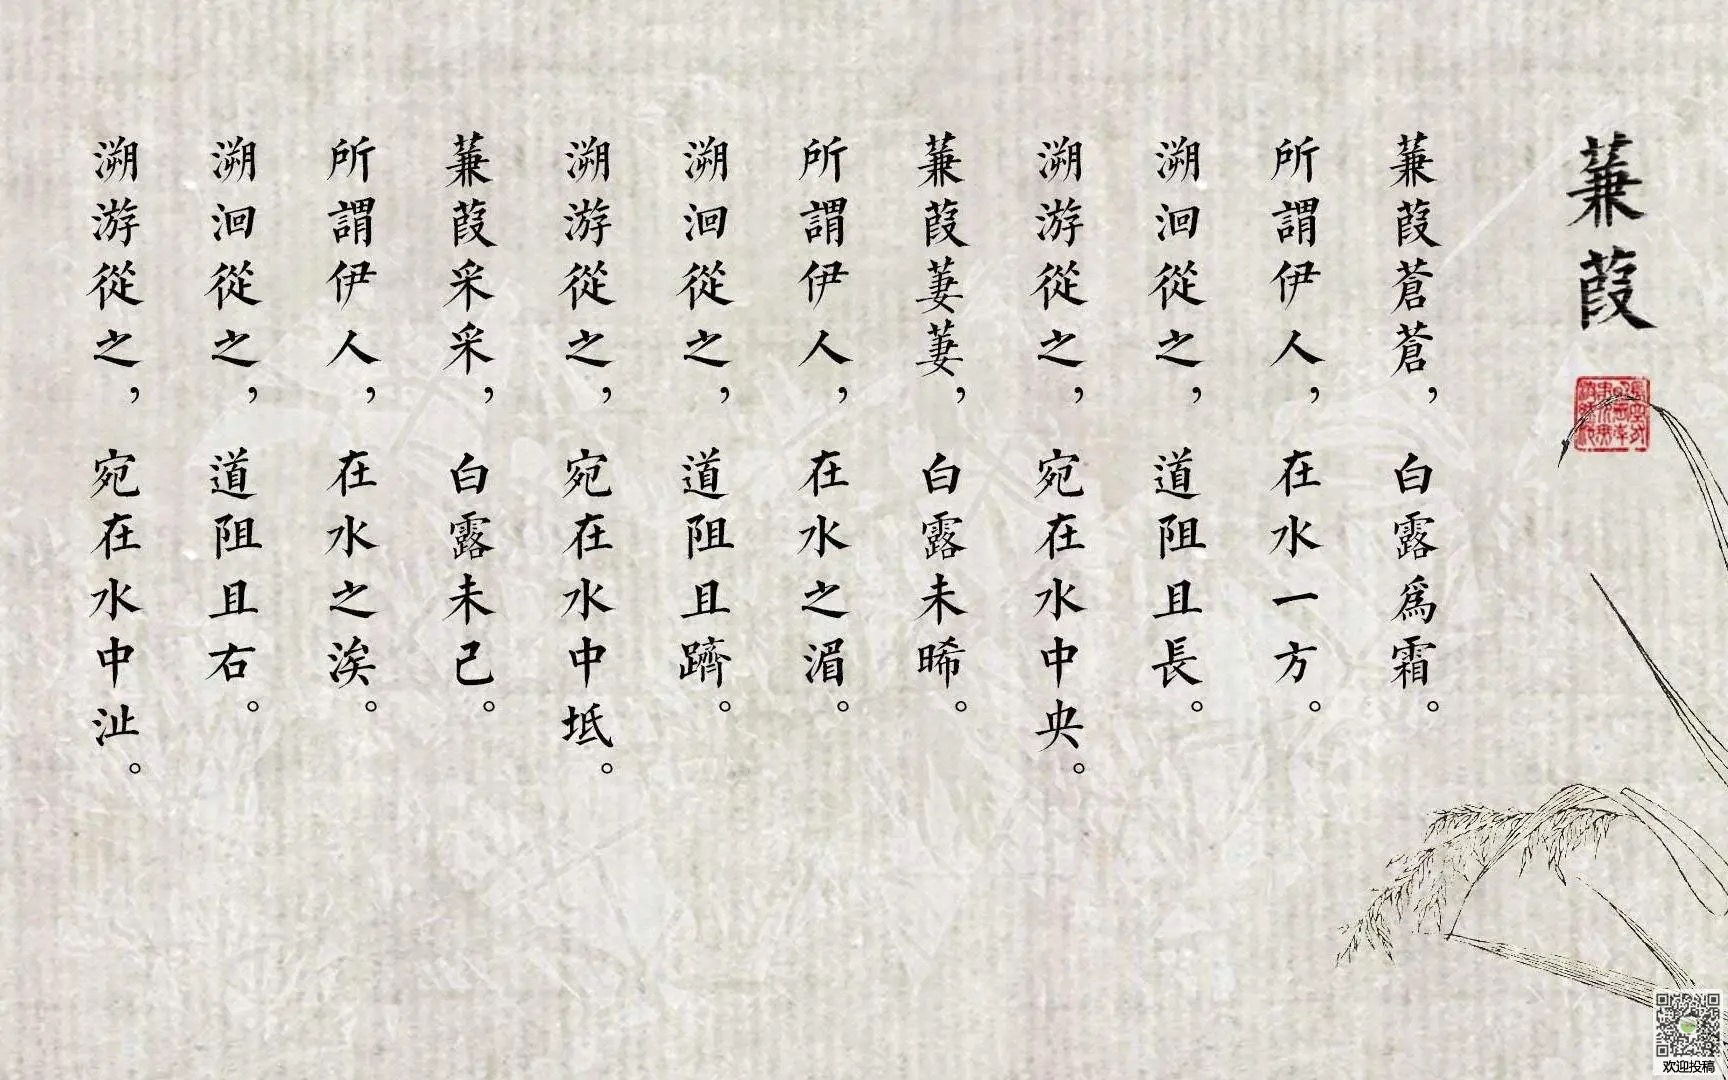 蒹葭
蒹葭蒼蒼，白露爲霜。
所謂伊人，在水一方。
溯洄從之，道阻且長。
溯游從之，宛在水中央。
蒹葭萋萋，白露未晞。
所謂伊人，在水之湄。
溯洄從之，道阻且躋。
溯游從之，宛在水中坻。
蒹葭采采，白露未已。
所謂伊人，在水之涘。
溯洄從之，道阻且右。
溯游從之，宛在水中沚。
欢迎投稿